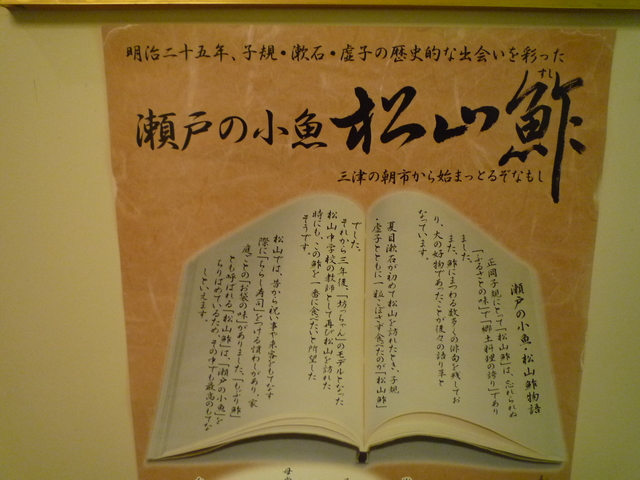 明治二十五年、子規・漱石・虚子の歴史的な出会いを彩った
瀬戸の小魚 松山鮓
すし
三津の朝市から始まっとるぞなもし
瀬戸の小魚・松山鮓物語
正岡子規にとって「松山鮓」は、忘れられぬ
「ふるさとの味」で「郷土料理の誇り」であり
ました。
また、鮓にまつわる数多くの俳句を残してお
り、大の好物であったことが後々の語り草と
なっています。
夏目漱石が初めて松山を訪れたとき、子規
・虚子とともに一粒こぼさず食べたのが「松山鮓」
でした。
それから三年後、「坊っちゃん」のモデルとなった
松山中学校の教師として再び松山を訪れた
時にも、この鮓を一番に食べたいと所望した
そうです。
松山では、昔から祝い事や来客をもてなす
際に「ちらし寿司」をつける慣わしがあり、家
庭ごとの「お袋の味」がありました。「もぶり鮓」
とも呼ばれる「松山鮓」は、「瀬戸の小魚」を
ちりばめているため、その中でも最高のもてな
しといえます。